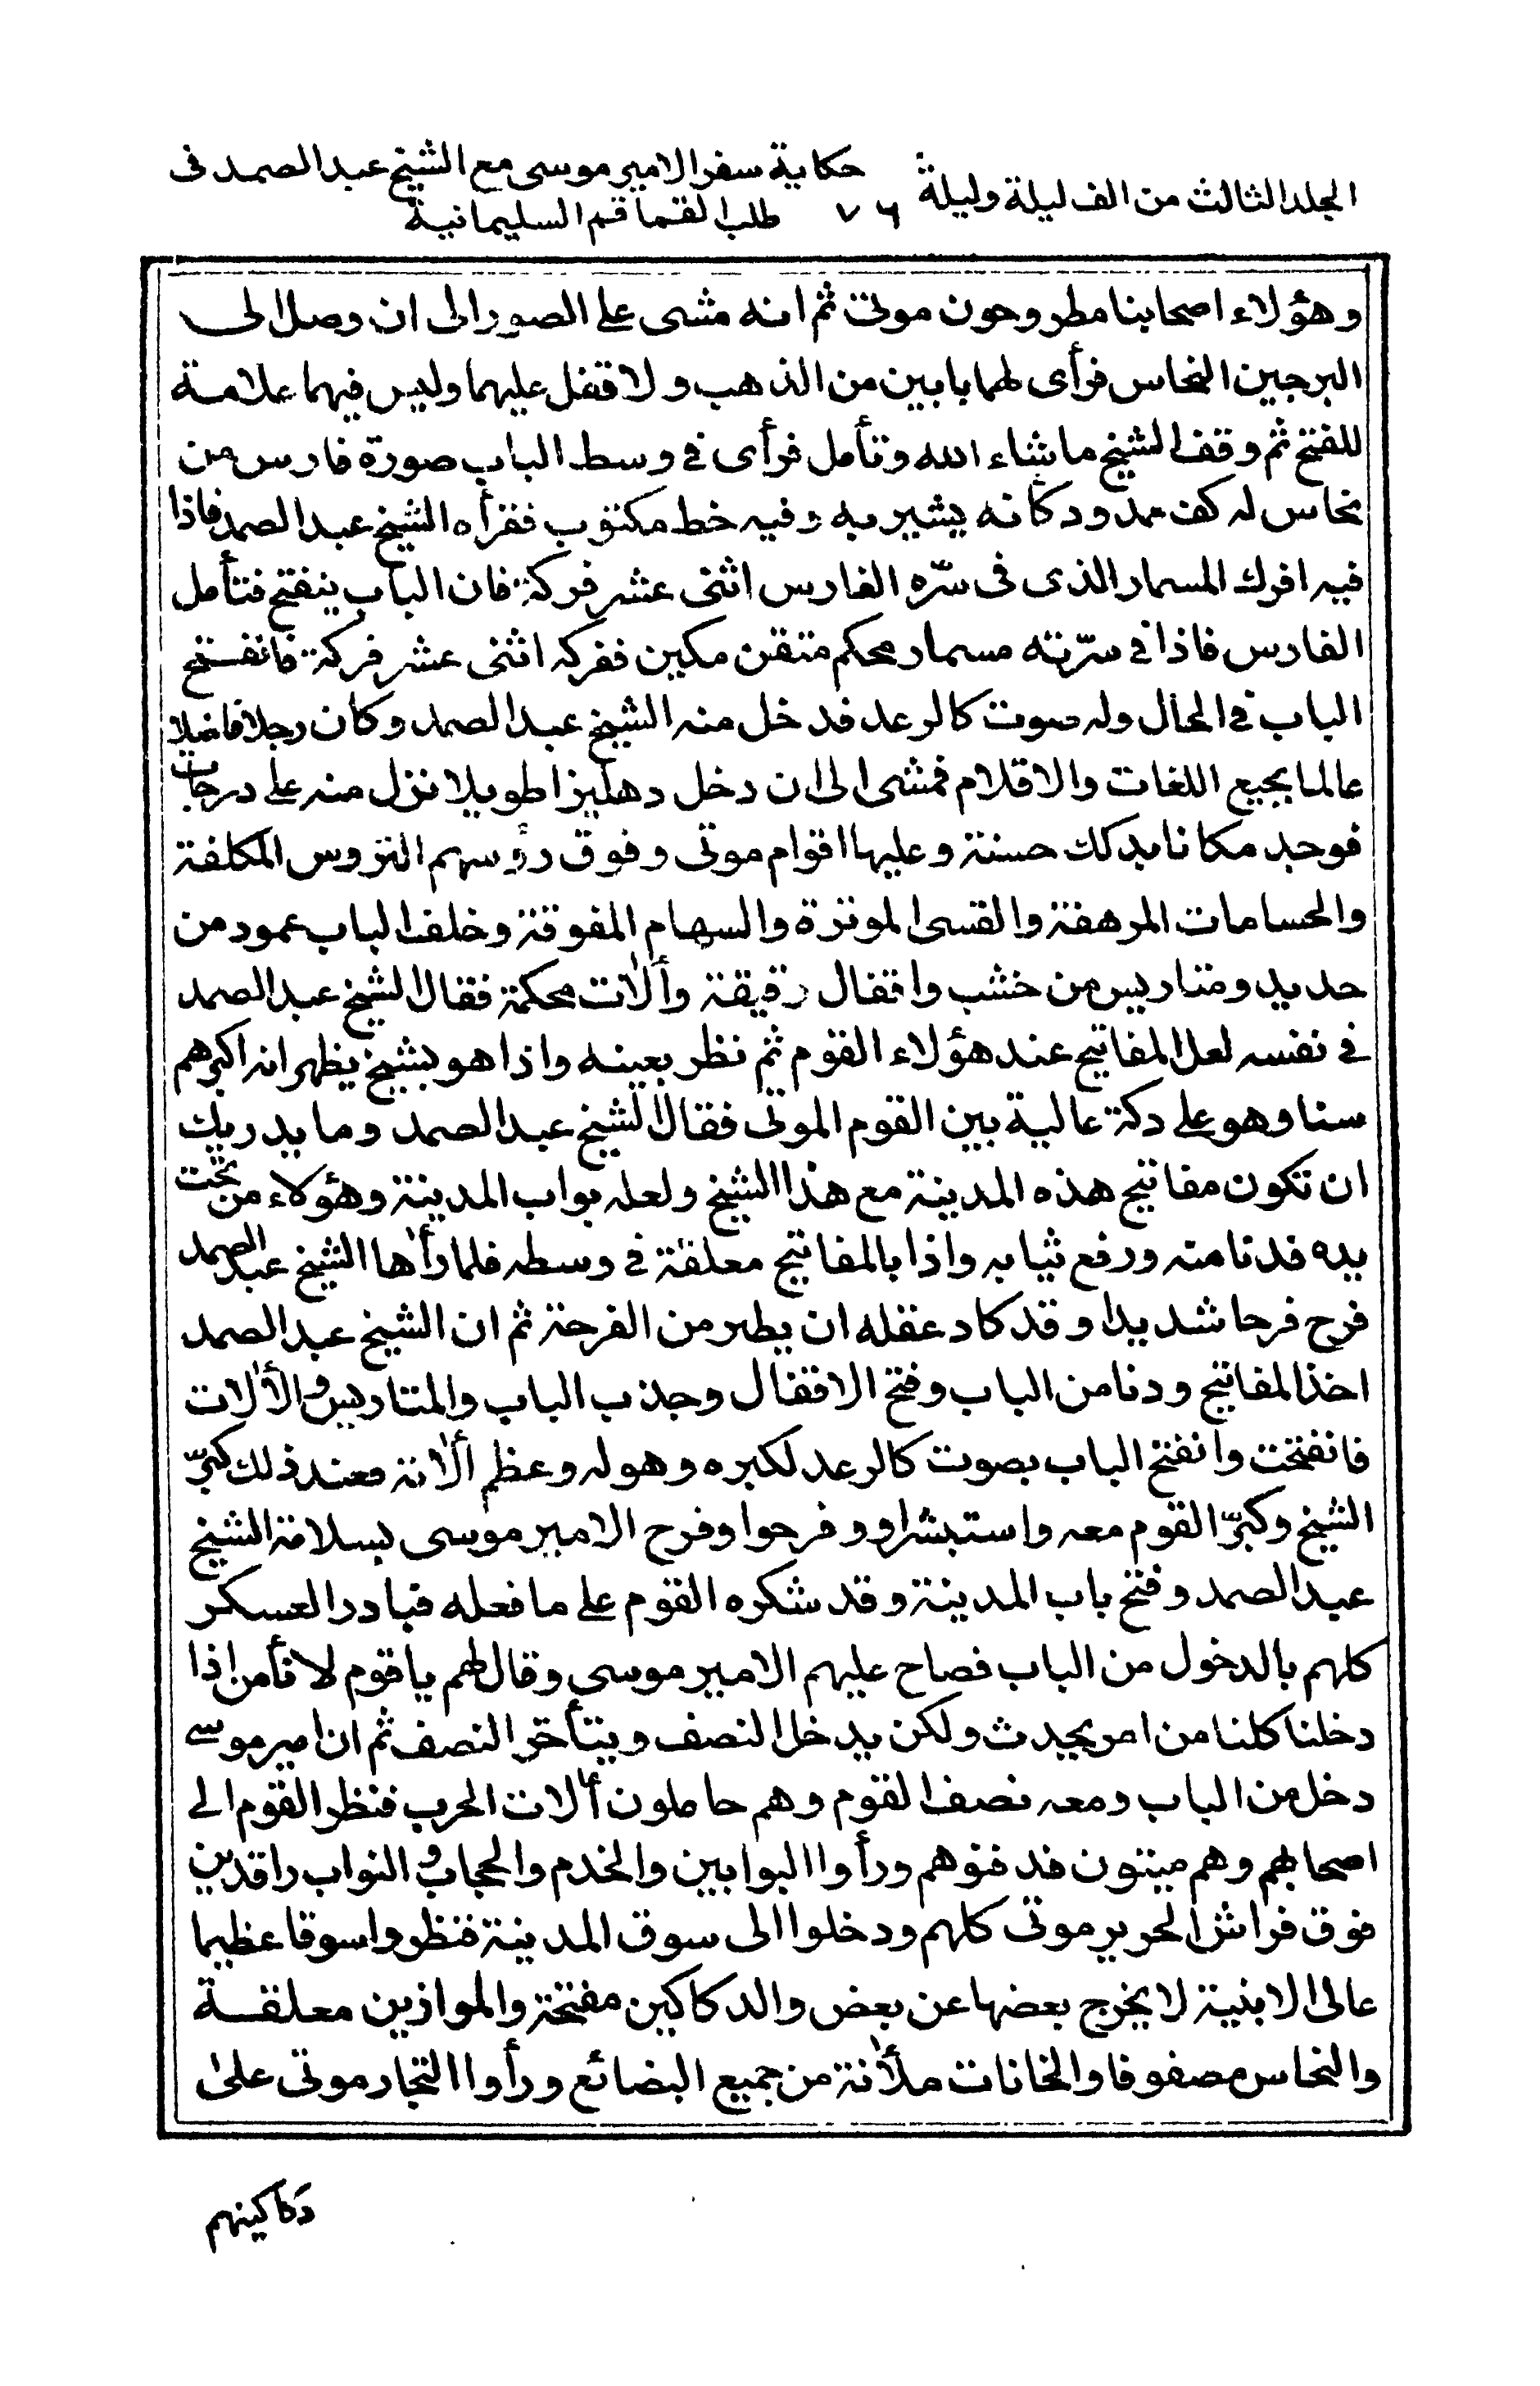 الجلد الثالث من الف ليلة وليلة
٧٦
حكاية سفر الامير موسى مع الشيخ عبد الصمد فى
طلب القماقم السليمانية
وهؤلاء اصحابنا مطروحون موتى ثم انه مشى على الصور الى ان وصل الى
البرجين النحاس فرأى لهما بابين من الذهب ولا قفل عليهما وليس فيهما علامة
للفتح ثم وقف الشيخ ما شاء الله وتأمل فرأى فى وسط الباب صورة فارس من
نحاس له كف ممدود كأنه يشير به وفيه خط مكتوب فقرأه الشيخ عبد الصمد فاذا
فيه افرك المسمار الذى فى سرّه الفارس اثنى عشر فركة فان الباب ينفتح فتأمل
الفارس فاذا فى سرّته مسمار محكم متقن مكين ففركه اثنى عشر فركة فانفتح
الباب فى الحال وله صوت كالرعد فدخل منه الشيخ عبد الصمد وكان رجلا فاضلا
عالما بجميع اللغات والاقلام فمشى الى ان دخل دهليزا طويلا نزل منه على درجات
فوجد مكانا بدكك حسنة وعليها اقوام موتى وفوق رؤسهم التروس المكلفة
والحسامات المرهفة والقسى الموترة والسهام المفوقة وخلف الباب عمود من
حديد ومتاريس من خشب واقفال رقيقة وألات محكمة فقال الشيخ عبد الصمد
فى نفسه لعل المفاتيح عند هؤلاء القوم ثم نظر بعينه واذا هو بشيخ يظهر انه اكبرهم
سنا وهو على دكة عالية بين القوم الموتى فقال الشيخ عبد الصمد وما يدريك
ان تكون مفاتيح هذه المدينة مع هذا الشيخ ولعله بواب المدينة وهؤلاء من تحت
يده فدنا منه ورفع ثيابه واذا بالمفاتيح معلقة فى وسطه فلما رأها الشيخ عبد الصمد
فرح فرحا شديدا وقد كاد عقله ان يطير من الفرحة ثم ان الشيخ عبد الصمد
اخذ المفاتيح ودنا من الباب وفتح الاقفال وجذب الباب والمتاريس والألات
فانفتحت وانفتح الباب بصوت كالرعد لكبره وهوله وعظم ألاته فعند ذلك كبّر
الشيخ وكبّر القوم معه واستبشراو وفرحوا وفرح الامير موسى بسلامة الشيخ
عبد الصمد وفتح باب المدينة وقد شكره القوم على ما فعله فبادر العسكر
كلهم بالدخول من الباب فصاح عليهم الامير موسى وقال لهم يا قوم لا نأمن اذا
دخلنا كلنا من امر يحدث ولكن يدخل النصف ويتأخر النصف ثم ان امير موسى
دخل من الباب ومعه نصف القوم وهم حاملون ألات الحرب فنظر القوم الى
اصحابهم وهم ميتون فدفنوهم ورأوا البوابين والخدم والحجاب و النواب راقدين
فوق فراش الحرير موتى كلهم ودخلوا الى سوق المدينة فنظروا سوقا عظيما
عالى الابنية لا يخرج بعضها عن بعض والدكاكين مفتحة والموازين معلقة
والنحاس مصفوفا والخانات ملأنة من جميع البضائع ورأوا التجار موتى على
دكاكينهم